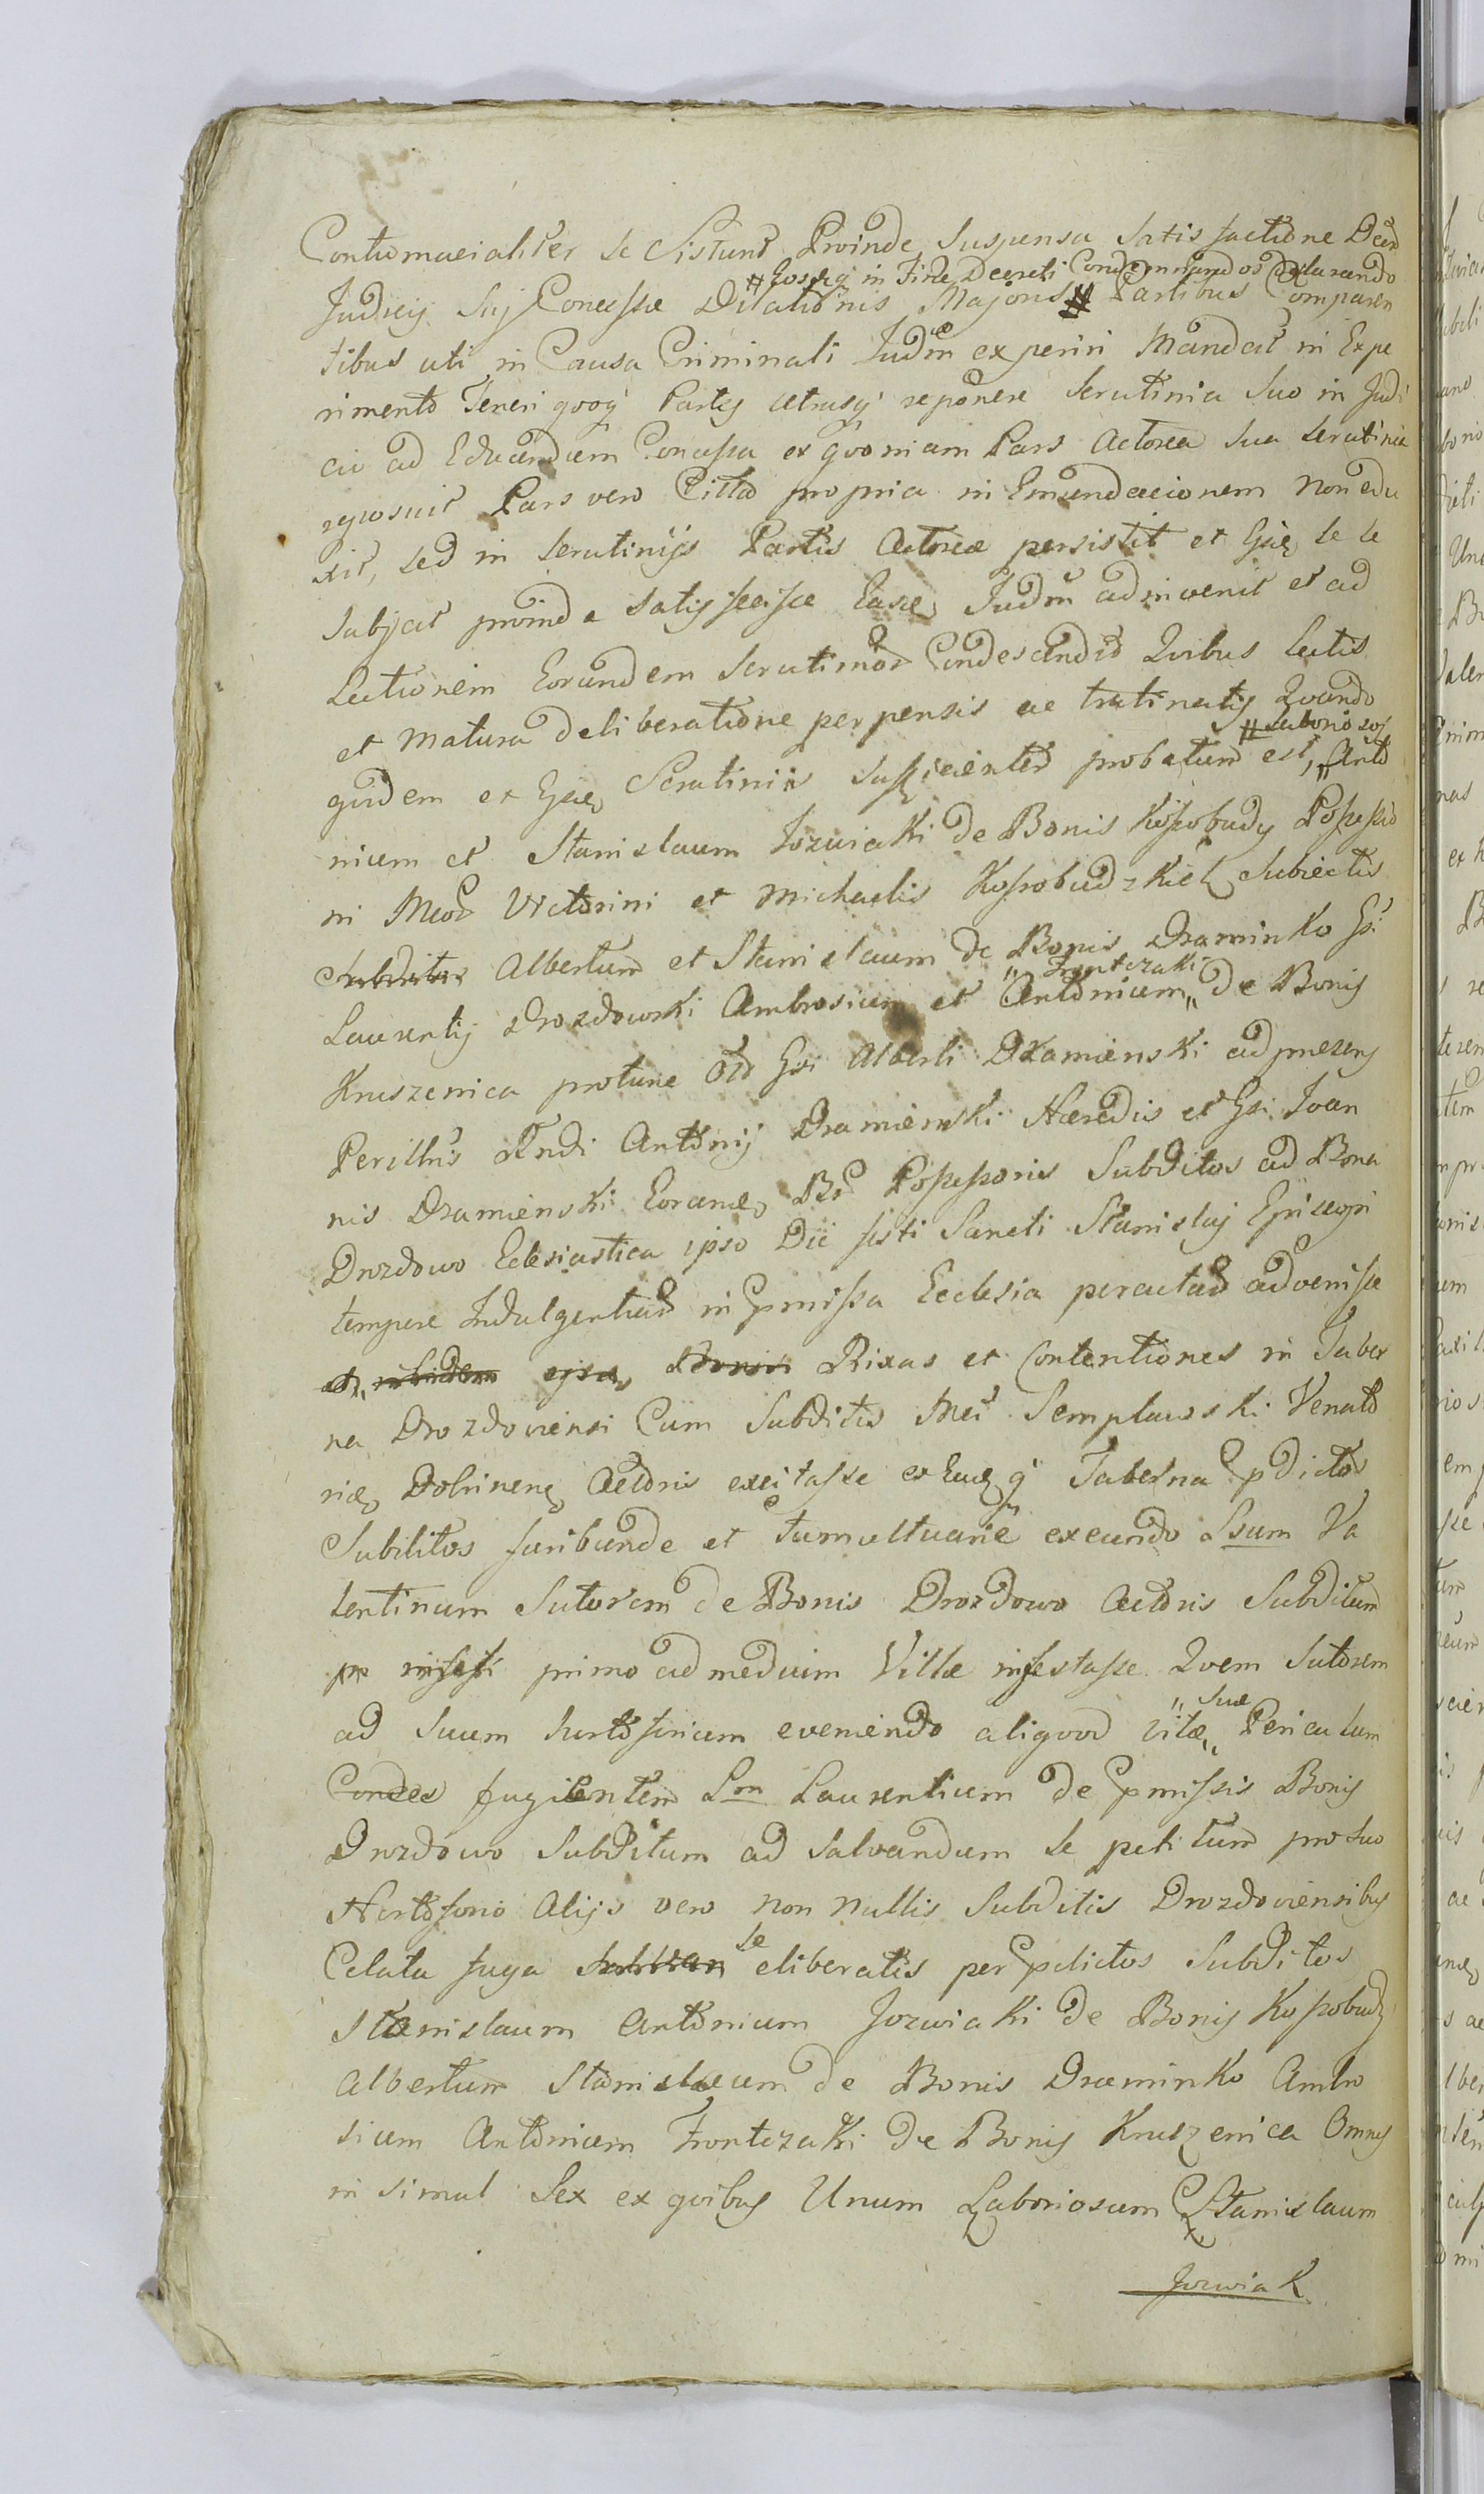 Contumacialiter se Sistunt Proinde Suspensa Satisfactione Decr
# Eosqq in Fine Decreti Condemnandos declarando
Judicij Sui Concessæ Dilationis Majoris # Partibus Comparen
tibus uti in Causa Criminali Judm experiri Mandat in Expe
rimento Teneri qvoq Partes utrasq reponere Scrutinia Suo in Judi
cio ad Educendum Concessa et qvoniam Pars Actorea Sua Scrutinia
reposuit Pars vero Citta propria in Emundacionem non edu
xit, sed in Scrutinijs Partis Actoreæ persistit et se se
Subijcit proinde Satisfecisse Judm adinvenit et ad
Lectionem Eorundem Scrutinior Condescendit Qvibus Lectis
et Matura deliberatione perpensis ac trutinatis Qvando
# Laboriosos
qvidem ex Scrutinio Sufficienter probatum est, " Anto
nium et Stanislaum Jozwiaki de Bonis Kossobudy Possessio
ni Mcor Victorini et Michaelis Kossobudzkich Subiectis
Subditos Albertum et Stanislaum de Bonis Draminko Gsi
" Frontczaki
Laurentij Drozdowski Ambrosium et Antonium " de Bonis
Kruszenica protunc Gsi Alberti Dramienski ad præsens
Perillris Rndi Antonij Dramienski Hæredis et Gsi Joan
nis Dramienski Br Possessoris Subditos ad Bona
Drozdowo Eclesiastica ipso Die festi Sancti Stanislaj Episcopi
tempore Indulgentiar in Pmissa Ecclesia peractar advenisse
et ibidem Rixas et Contentiones in Taber
na Drozdoviensi Cum Subditis Mci Semplawski Venato
ris Dobrinen Actoris excitasse ex q Taberna pdictos
Subditos furibunde et tumultuarie exeundo Lsum Va
lentinum Sutorem de Bonis Drozdowo Actoris Subditum
pr infesti primo ad medium Villæ infestasse Qvem Sutorem
" Suæ
ad Suum hortoforium eveniendo aliqvod vitæ " Periculum
Condes fugientem Lm Laurentium de Pmissis Bonis
Drozdowo Subditum ad Salvandum se petitum pro Suo
Hortoforio Alijs vero non nullis Subditis Drozdoviensibus
se
Celata fuga eliberatis per Pdictos Subditos
Stanislaum Antonium Jozwiaki de Bonis Kossobudz
Albertum Stanislaum de Bonis Draminko Ambro
sium Antonium Frontczaki de Bonis Kruszenica Omnes
in simul Sex ex qvibus Unum Laboriosum Stanislaum
Jozwiak